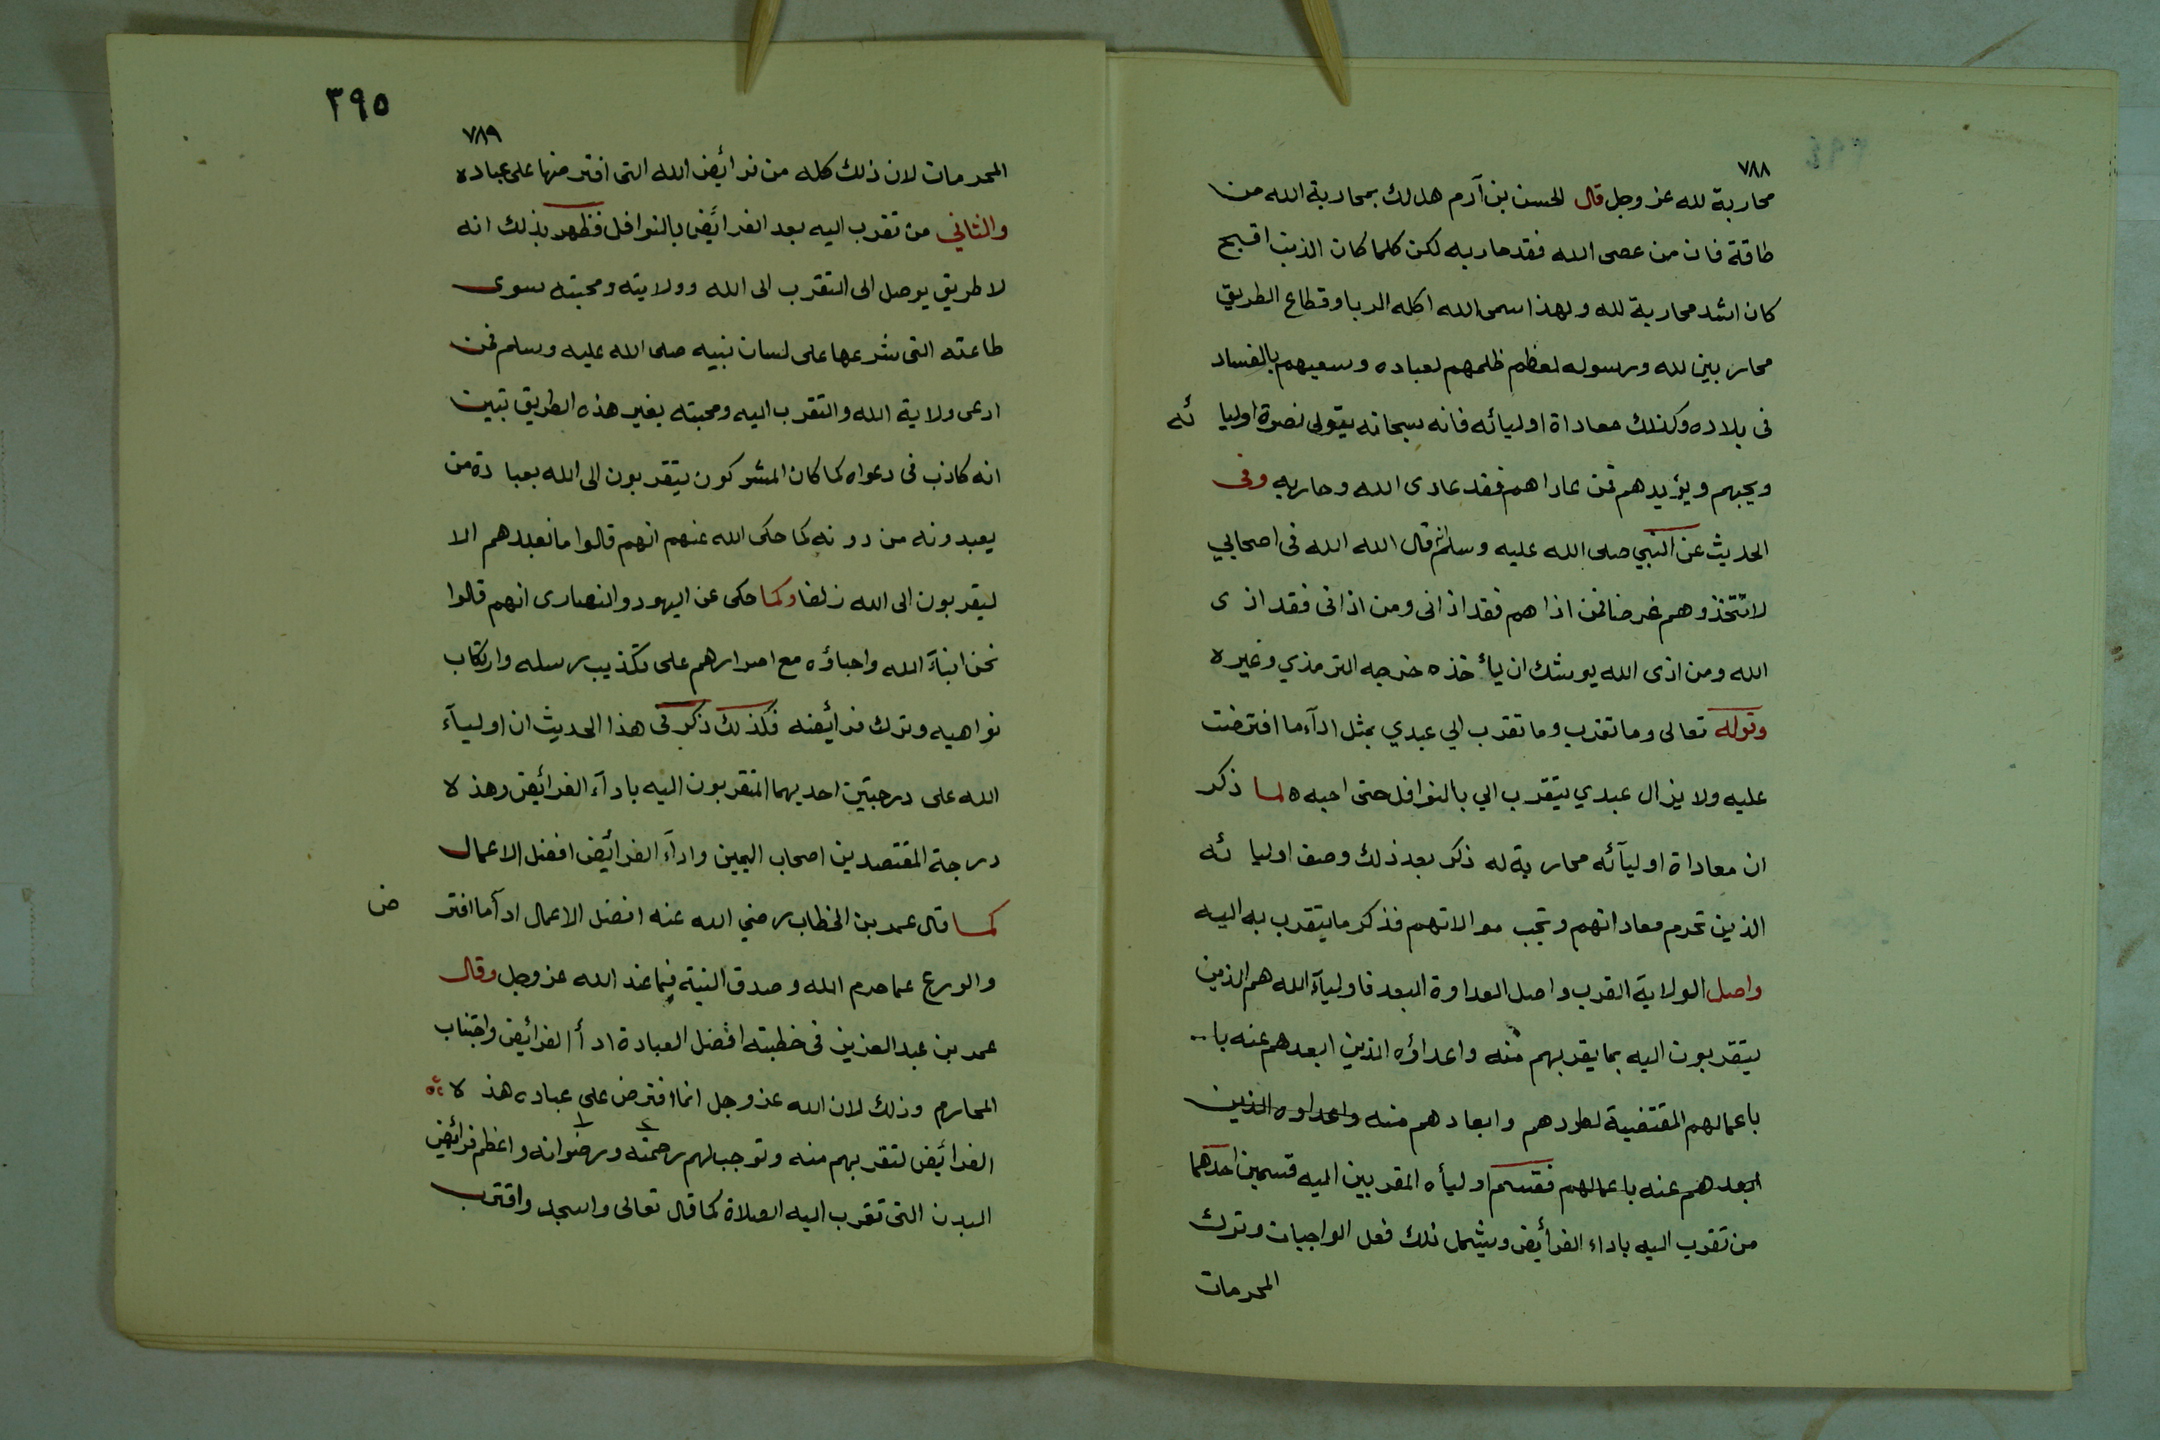 ٧٨٨
محاربة لله عز وجل قال الحسن بن آدم هل لك بمحاربة الله من
طاقة فان من عصى الله فقد حاربه لكن كلما كان الذنب اقبح
كان اشد محاربة لله ولهذا سمى الله اكلة الربا وقطاع الطريق
محاربين لله ورسوله لعظم ظلمهم لعباده وسعيهم بالفساد
فى بلاده وكذلك معاداة اوليائه فانه سبحانه يتولى نصرة اوليا ئه
ويحبهم ويؤيدهم فمن عاداهم فقد عادى الله وحاربه وفى
الحديث عن النبي صلى الله عليه وسلم قال الله الله فى اصحابي
لا تتخذوهم غرضا فمن اذاهم فقد اذانى ومن اذانى فقد اذ ى
الله ومن اذى الله يوشك ان يأ خذه خرجه الترمذي وغيره
وقوله تعالى وما تقرب وما تقرب الي عبدي بمثل ادآء ما افترضت
عليه ولا يزال عبدي يتقرب الي بالنوافل حتى احبه لما ذكر
ان معاداة اوليآئه محاربة له ذكر بعد ذلك وصف اوليا ئه
الذين تحرم معاداتهم وتجب موالاتهم فذكر ما يتقرب به اليه
واصل الولاية القرب واصل العداوة البعد فاوليآء الله هم الذين
يتقربون اليه بما يقربهم منه واعداؤه الذين ابعدهم عنه با..
باعمالهم المقتضية لطردهم وابعادهم منه واعداوه الذين
ابعدهم عنه باعمالهم فقسم اوليأه المقربين اليه قسمين احدهما
من تقرب اليه باداء الفرأيض ويشمل ذلك فعل الواجبات وترك
المحرمات
٣٩٥
٧٨٩
المحرمات لان ذلك كله من فرائض الله التى افترضها على عباده
والثاني من تقرب اليه بعد الفرائض بالنوافل فظهر بذلك انه
لا طريق يوصل الى التقرب الى الله وولايته ومحبته سوى
طاعته التى شرعها على لسان نبيه صلى الله عليه وسلم فمن
ادعى ولاية الله والتقرب اليه ومحبته بغير هذه الطريق تبين
انه كاذب فى دعواه كما كان المشركون يتقربون الى الله بعبا دة من
يعبدونه من دونه كما حكى الله عنهم انهم قالوا ما نعبدهم الا
ليقربون الى الله زلفا وكما حكى عن اليهود والنصارى انهم قالوا
نحن ابنآء الله واحباؤه مع اصرارهم على تكذيب رسله وارتكاب
نواهيه وترك فرائضه فكذلك ذكر فى هذا الحديث ان اوليآء
الله على درجتين احديهما المتقربون اليه بادآء الفرائض وهذ ه
درجة المقتصدين اصحاب اليمين وادآء الفرائض افضل الاعمال
كما قال عمر بن الخطاب رضي الله عنه افضل الاعمال ادآ ما افتر ض
والورع عما حرم الله وصدق النية فيما عند الله عز وجل وقال
عمر بن عبد العزيز فى خطبته افضل العبادة اد أ الفرائض واجتناب
المحارم وذلك لان الله عز وجل انما افترض على عباده هذ ه
الفرائض لتقربهم منه وتوجب لهم رحمته ورضوانه واعظم فرائض
البدن التى تقرب اليه الصلاة كما قال تعالى واسجد واقترب